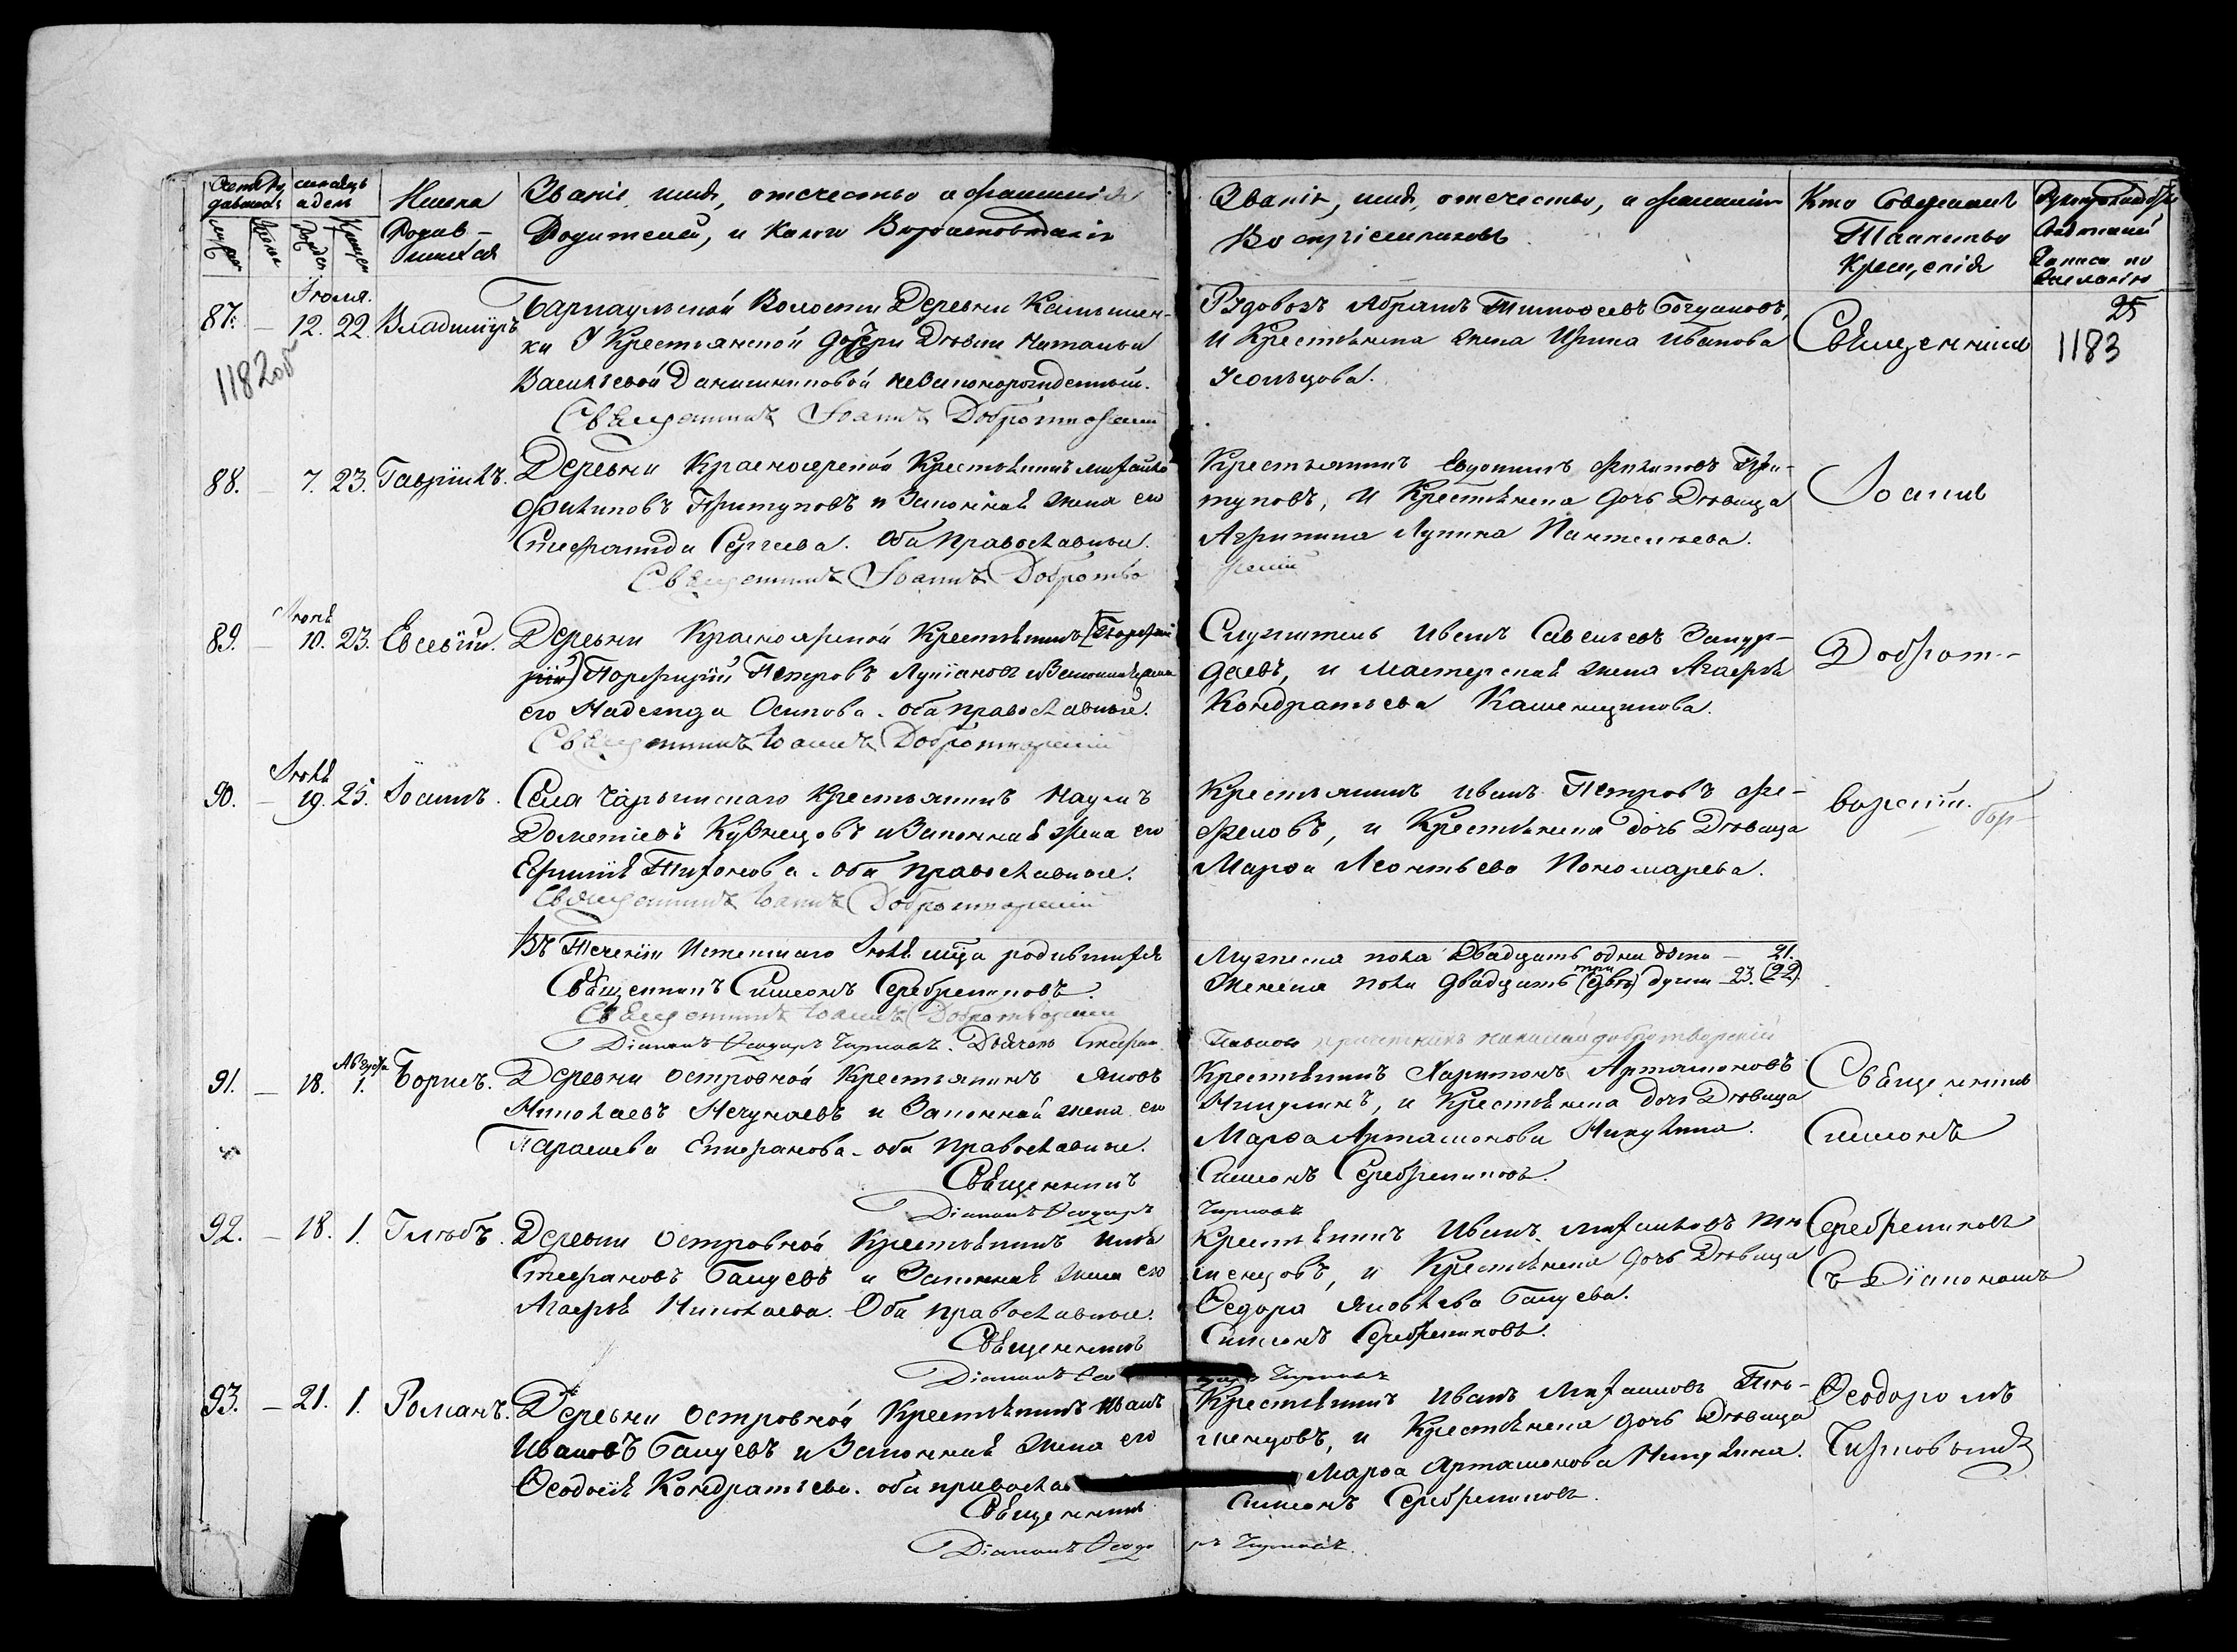 Имена
Родив-
шихся
Званіе, имя, отчество и фамилія
Родителей, и какого Вѣроисповѣданія
Званіе, имя, отчество, и фамилія
Воспріемниковъ
Кто Совершалъ
Таинство
Крещенія
Записи по
желанію
Іюля.
87. – 12. 22. Владимиръ
Барнаульской Волости Деревни
ки у Крестьянской дочери Дѣвки Натальи
Васильевой незаконорожденный.
Священникъ Іоаннъ Добротворскій
Абрамъ Тимофеевъ Богдановъ,
и Крестьянина жена Ирина Иванова
Усольцова.
Священникъ
25
1183
1182об
88. – 7. 23. Гавріилъ.
Деревни Красноярской Крестьянинъ Михайло
Филиповъ Притуповъ и Законная жена его
Стефанида Сергеева. Оба православные.
Священникъ Іоаннъ Добротво
Крестьянинъ Евдокимъ Филиповъ При-
туповъ, и Крестьянина дочь Дѣвица
Агрипина Лупина Пантелеева.
рскій
Іоаннъ
Іюля
89. – 10. 23. Евсевій.
Деревни Красноярской Крестьянинъ
Порфирій Петровъ и Законная жена
его Надежда Осипова. оба православные.
Священникъ Іоаннъ Добротворскій
Служитель Иванъ Савельевъ
даевъ, и Мастерская жена Агафья
Кондратьева
Доброт-
Іюля
90. – 19. 25. Іоаннъ.
Села Чарышскаго Крестьянинъ Наумъ
Дометіевъ Кузнецовъ и Законная жена его
Тихонова. Оба православные.
Священникъ Іоаннъ Добротворскій
Крестьянинъ Иванъ Петровъ Фе-
феловъ, и Крестьянина дочь Дѣвица
Марѳа Леонтьева Пономарева.
ворскій.
Въ Теченіи Истекшаго Іюля мца родившихся
Священникъ Симеонъ Серебренниковъ.
Священникъ Іоаннъ Добротворскій
Діаконъ Ѳеодоръ Дьячекъ Стефан
Мужеска пола Двадцать одна душа – 21.
Женска пола двадцать (двѣ) три души 23. (22).
Павловъ причетникъ Николай Добротворскій
Августа
91. – 18. 1. Борисъ.
Деревни Островной Крестьянинъ Яковъ
Николаевъ Нечунаевъ и Законная жена его
Параскева Стефанова. оба православные.
Священникъ
Крестьянинъ Харитонъ Артамоновъ
Никулинъ, и Крестьянина дочь Дѣвица
Марѳа Артамонова Никулина.
Симеонъ Серебренниковъ.
Священникъ
Симеонъ
Діаконъ Ѳеодоръ
92. – 18. 1. Глѣбъ.
Деревни Островной Крестьянинъ
Стефановъ и Законная жена его
Агафья Николаева. Оба православные.
Священникъ
Крестьянинъ Иванъ Михайловъ Тю
менцовъ, и Крестьянина дочь Дѣвица
Ѳедора Яковлева
Симеонъ Серебренниковъ.
Серебренниковъ
съ Діакономъ
Діаконъ Ѳео
93. – 21. 1. Романъ.
Деревни Островной Крестьянинъ Иванъ
Ивановъ и Законная жена его
Ѳеодосія Кондратьева. оба правосла
Священникъ
Діаконъ Ѳеодо
Крестьянинъ Иванъ Михайловъ Тю-
менцовъ, и Крестьянина дочь Дѣвица
Марѳа Артамонова Никулина.
Симеонъ Серебренниковъ.
Ѳеодоромъ